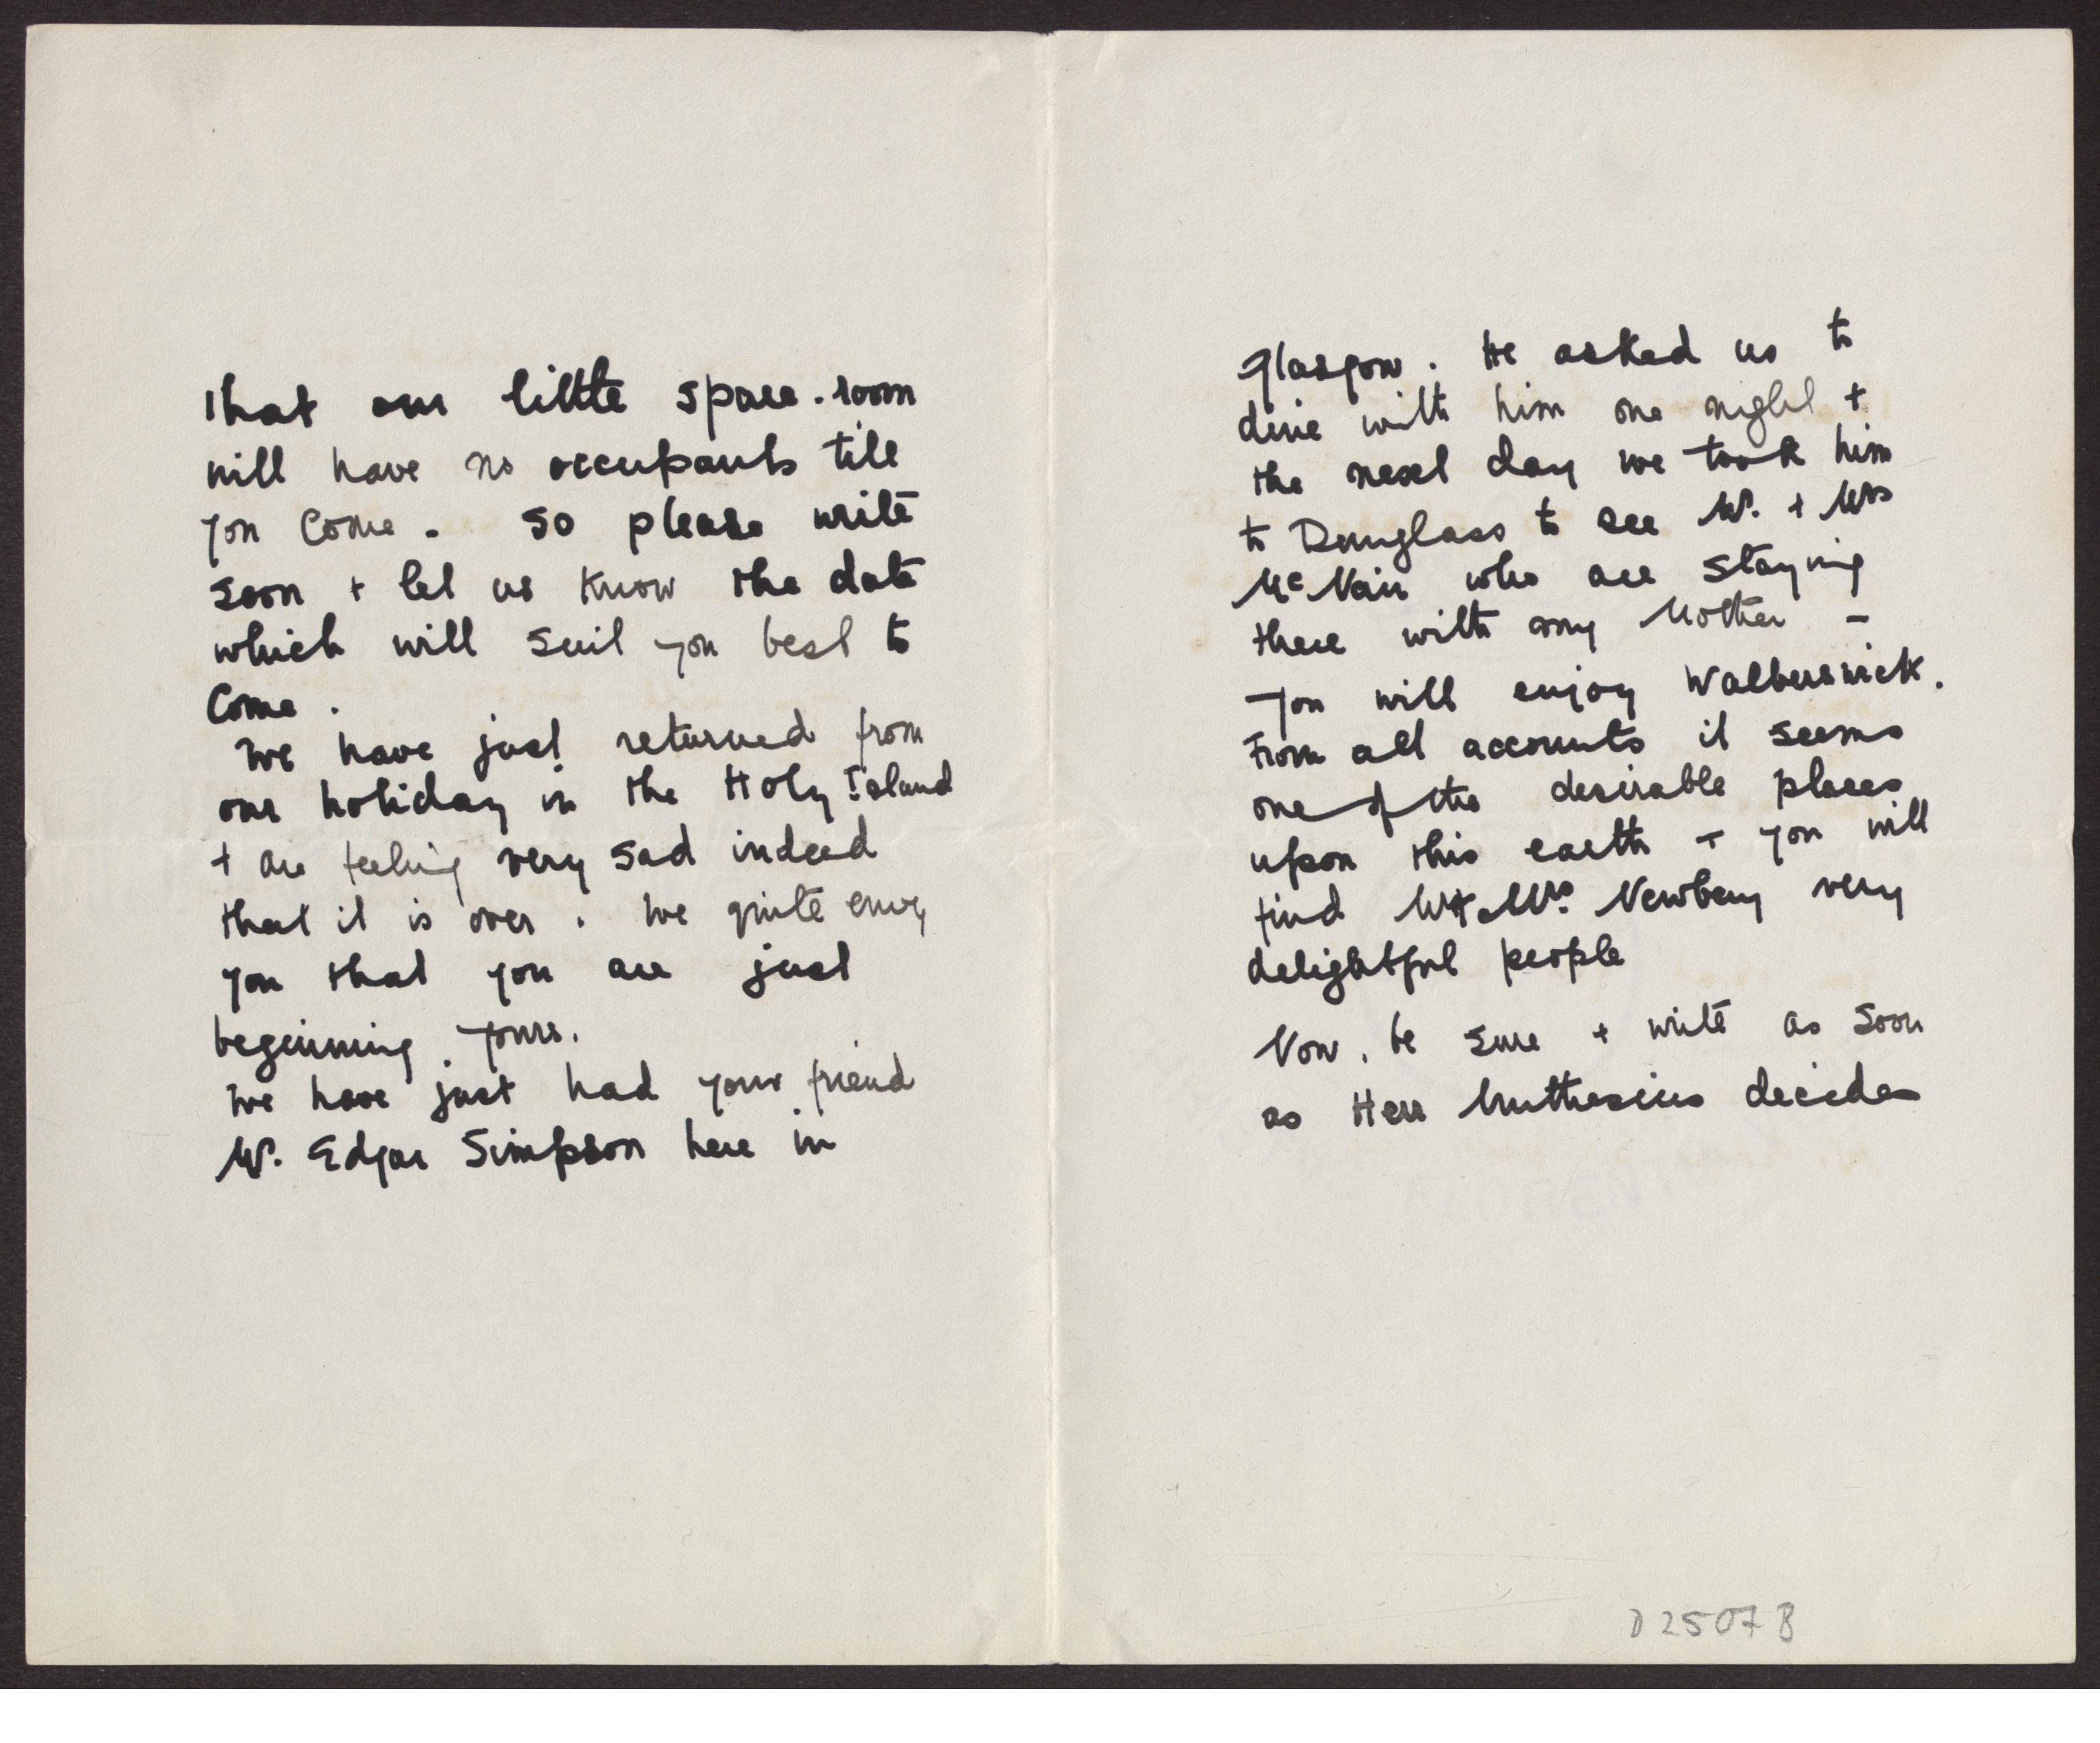 that our little spare-room
will have no occupants till
you come. So please write
soon + let us know the date
which will suit you best to
come.
We have just returned from
our holiday in the Holy Island
+ are feeling very sad indeed
that it is over. We quite envy
you that you are just
beginning yours.
We have just had your friend
Mr. Edgar Simpson here in
Glasgow. He asked us to
dine with him one night +
the next day we took him
to Dunglass to see Mr. + Mrs
McNair who are staying
there with my Mother –
You will enjoy Walberswick.
From all accounts it seems
one of the desirable places
upon this earth + you will
find Mr + Mrs. Newbery very
delightful people
Now, be sure + write as soon
as Herr Muthesius decides
D 2507 B